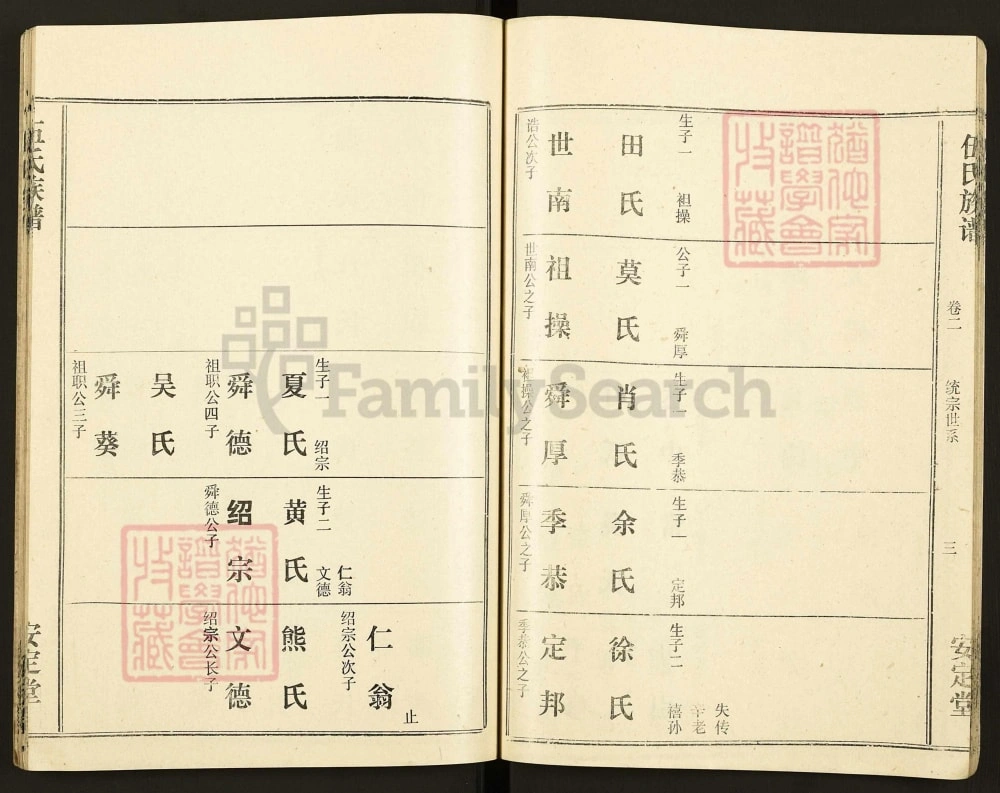 伍氏族谱
卷二
统宗世系
三
安定堂
生子一 祖操
田氏
世南
浩公次子
公子一 舜厚
莫氏
祖操
世南公之子
生子一 季恭
肖氏
舜厚
祖操公之子
生子一 定邦
余氏
季恭
舜厚公之子
失传
老
禧孙
生子二
徐氏
定邦
季恭公之子
生子一 绍宗
夏氏
舜德
祖职公四子
吴氏
舜葵
祖职公三子
仁翁
生子二 文德
黄氏
绍宗
舜德公子
止
仁翁
绍宗公次子
熊氏
文德
绍宗公长子
伍氏族谱
安定堂
FamilySearch